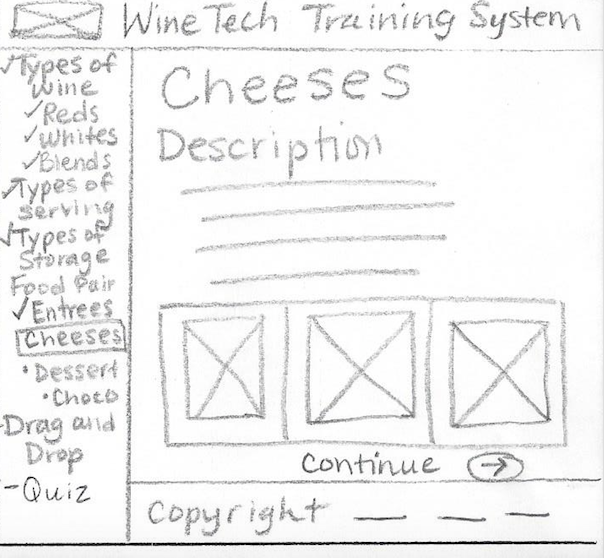 WineTech Training System
✓Types of
Wine
✓Reds
✓Whites
✓Blends
✓Types of
serving
✓Types of
Storage
Food Pair
✓Entrees
Cheeses
•Dessert
•Choco
-Drag and
Drop
-Quiz
Cheeses
Description
Continue →
Copyright